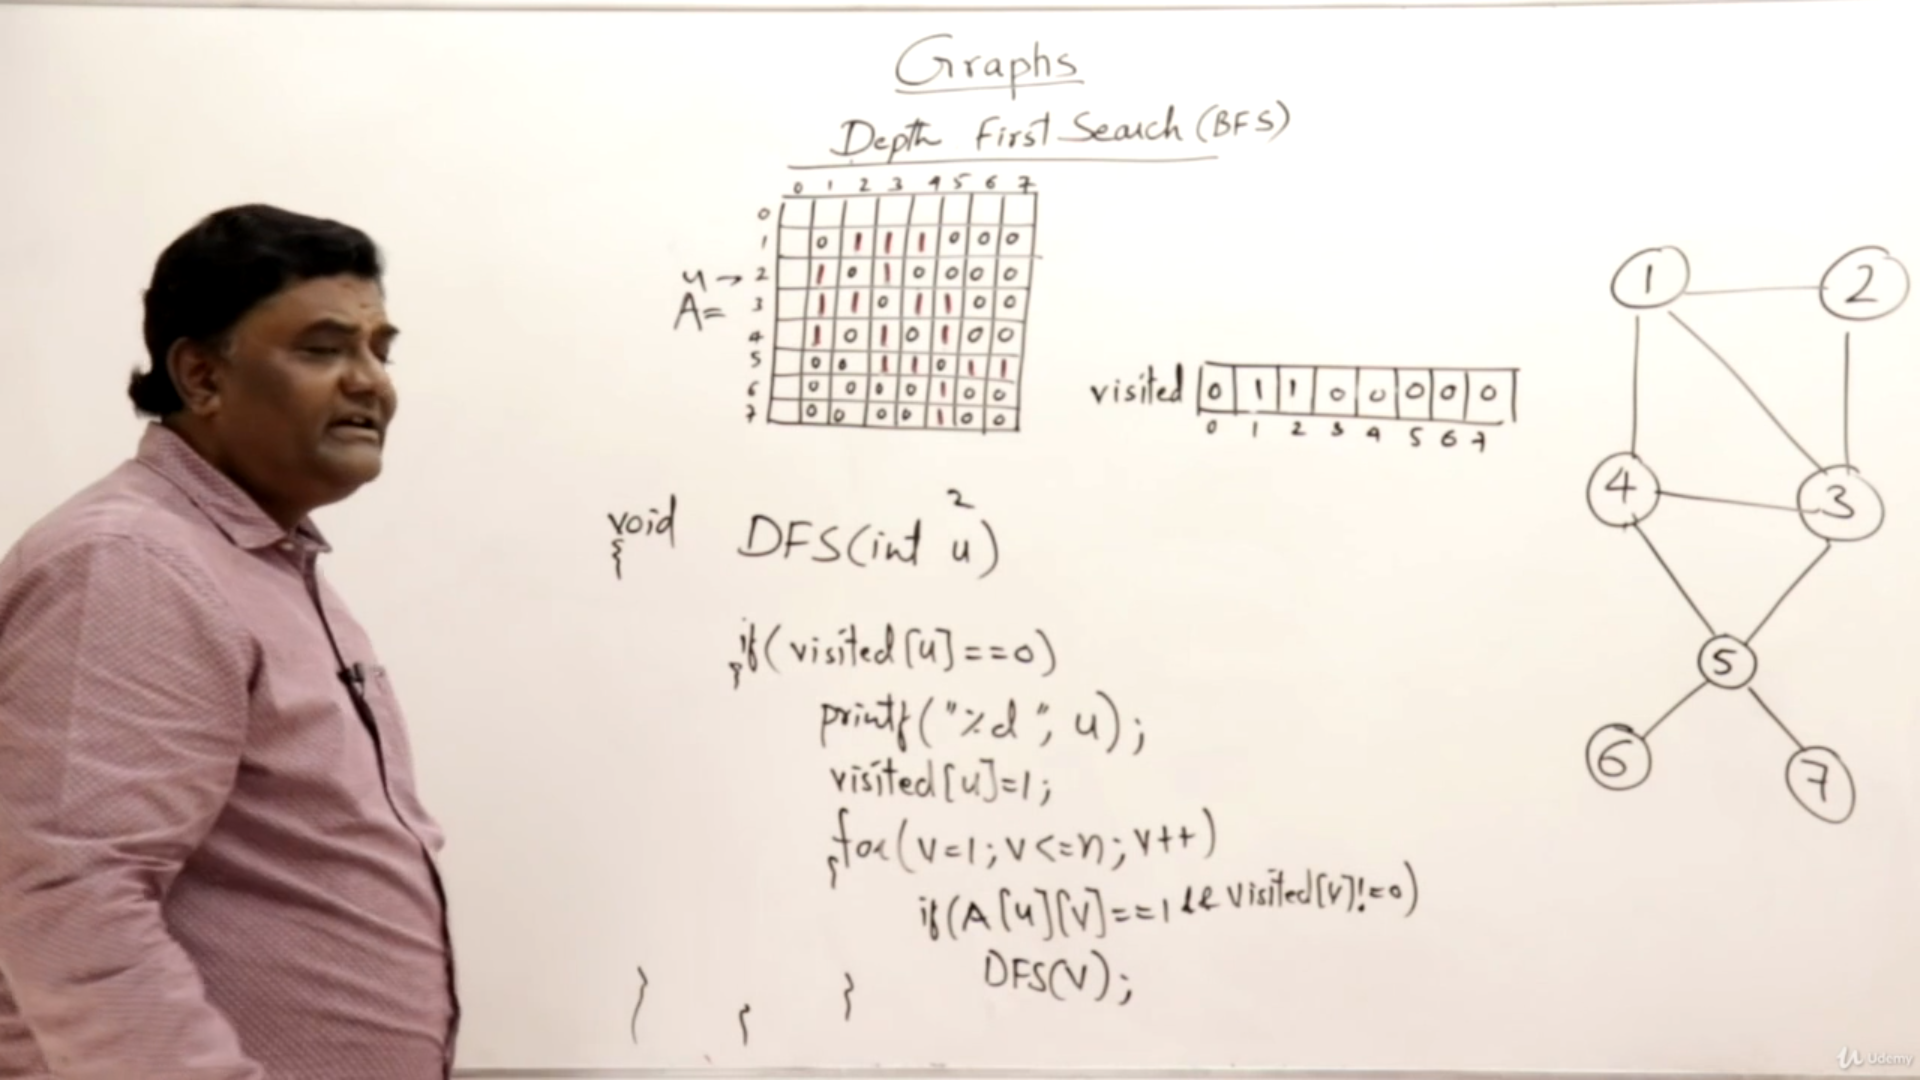 Graphs
Depth First Search (BFS)
0 1 2 3 4 5 6 7
0
1 0 1 1 1 0 0 0
u → 2 1 0 1 0 0 0 0
A= 3 1 1 0 1 1 0 0
4 1 0 1 0 1 0 0
5 0 0 1 1 0 1 1
6 0 0 0 0 1 0 0
7 0 0 0 0 1 0 0
visited 0 1 1 0 0 0 0 0
0 1 2 3 4 5 6 7
2
void DFS(int u)
{
if(visited[u]==0)
{
printf("%d", u);
visited[u]=1;
for(v=1; v<=n; v++)
{
if(A[u][v]==1 && visited[v]!=0)
DFS(v);
}
}
}
1 2
4 3
5
6 7
Udemy